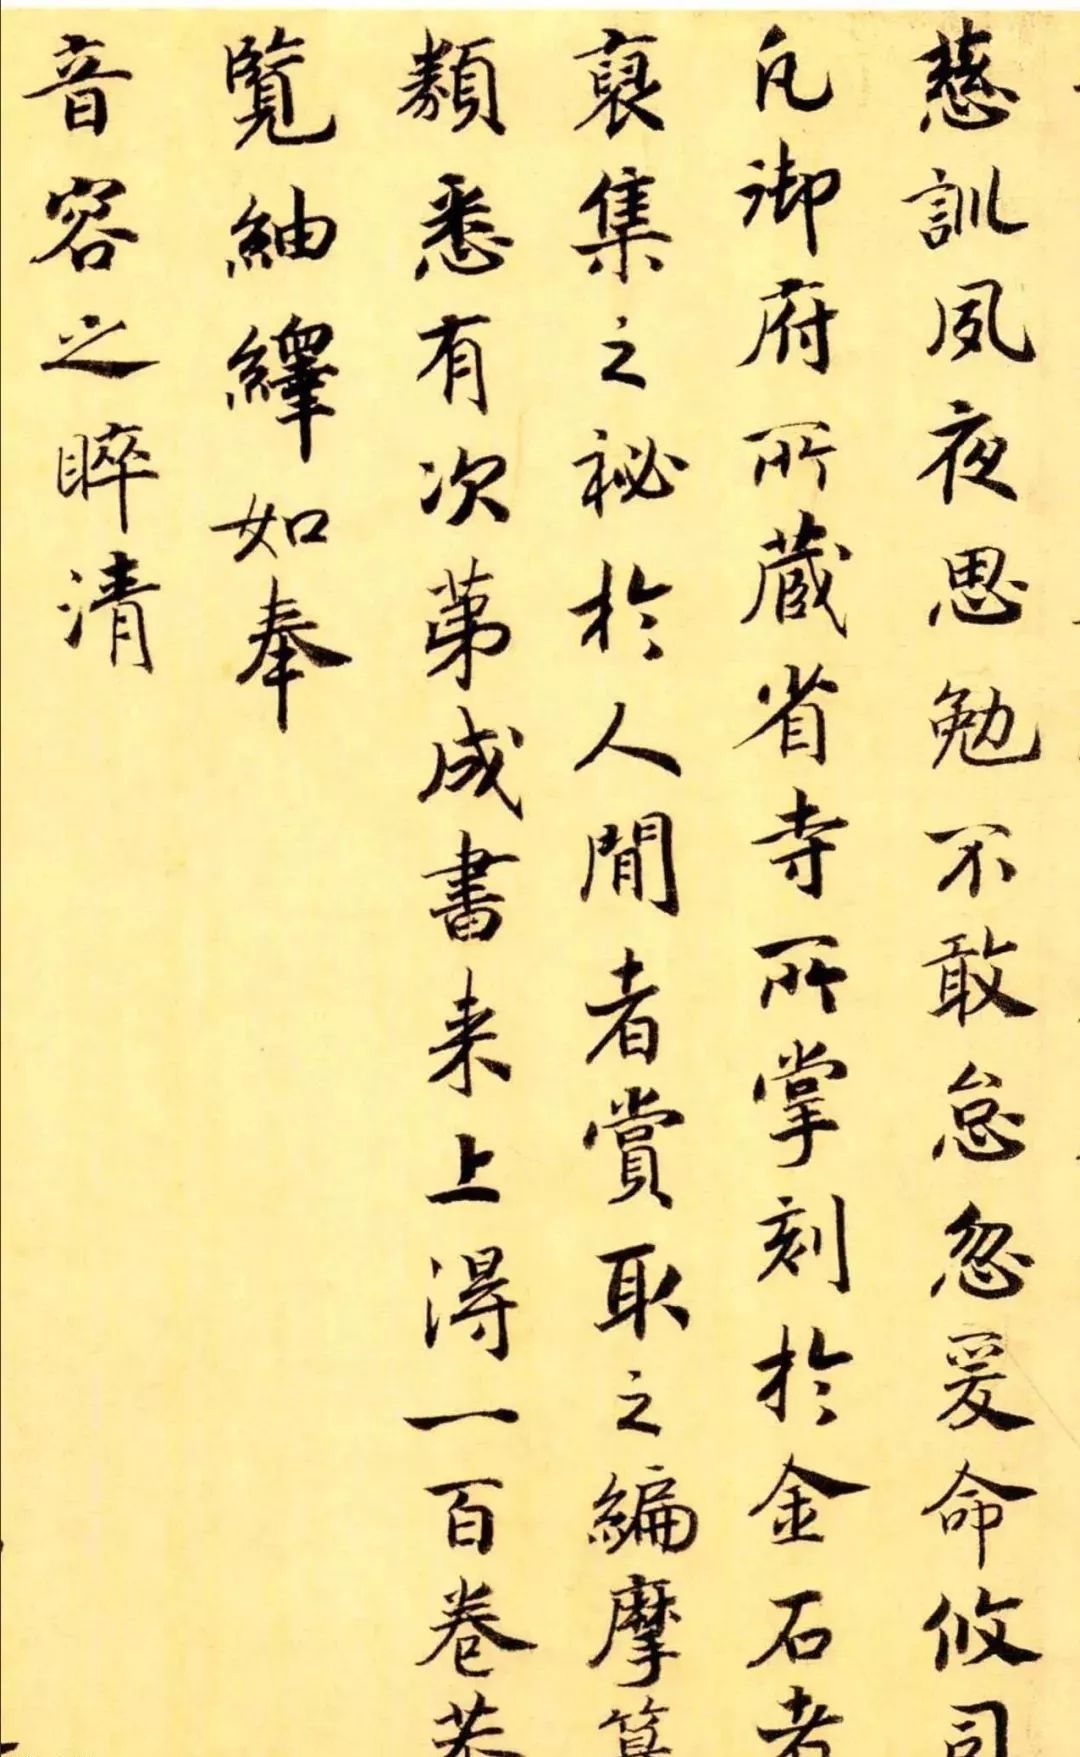 慈訓夙夜思勉不敢怠忽爰命攸司
凡御府所蔵省寺所掌刻於金石者
裒集之祕於人間者賞取之編摩
類悉有次苐成書来上淂一百卷恭
覧紬繹如奉
音容之睟清